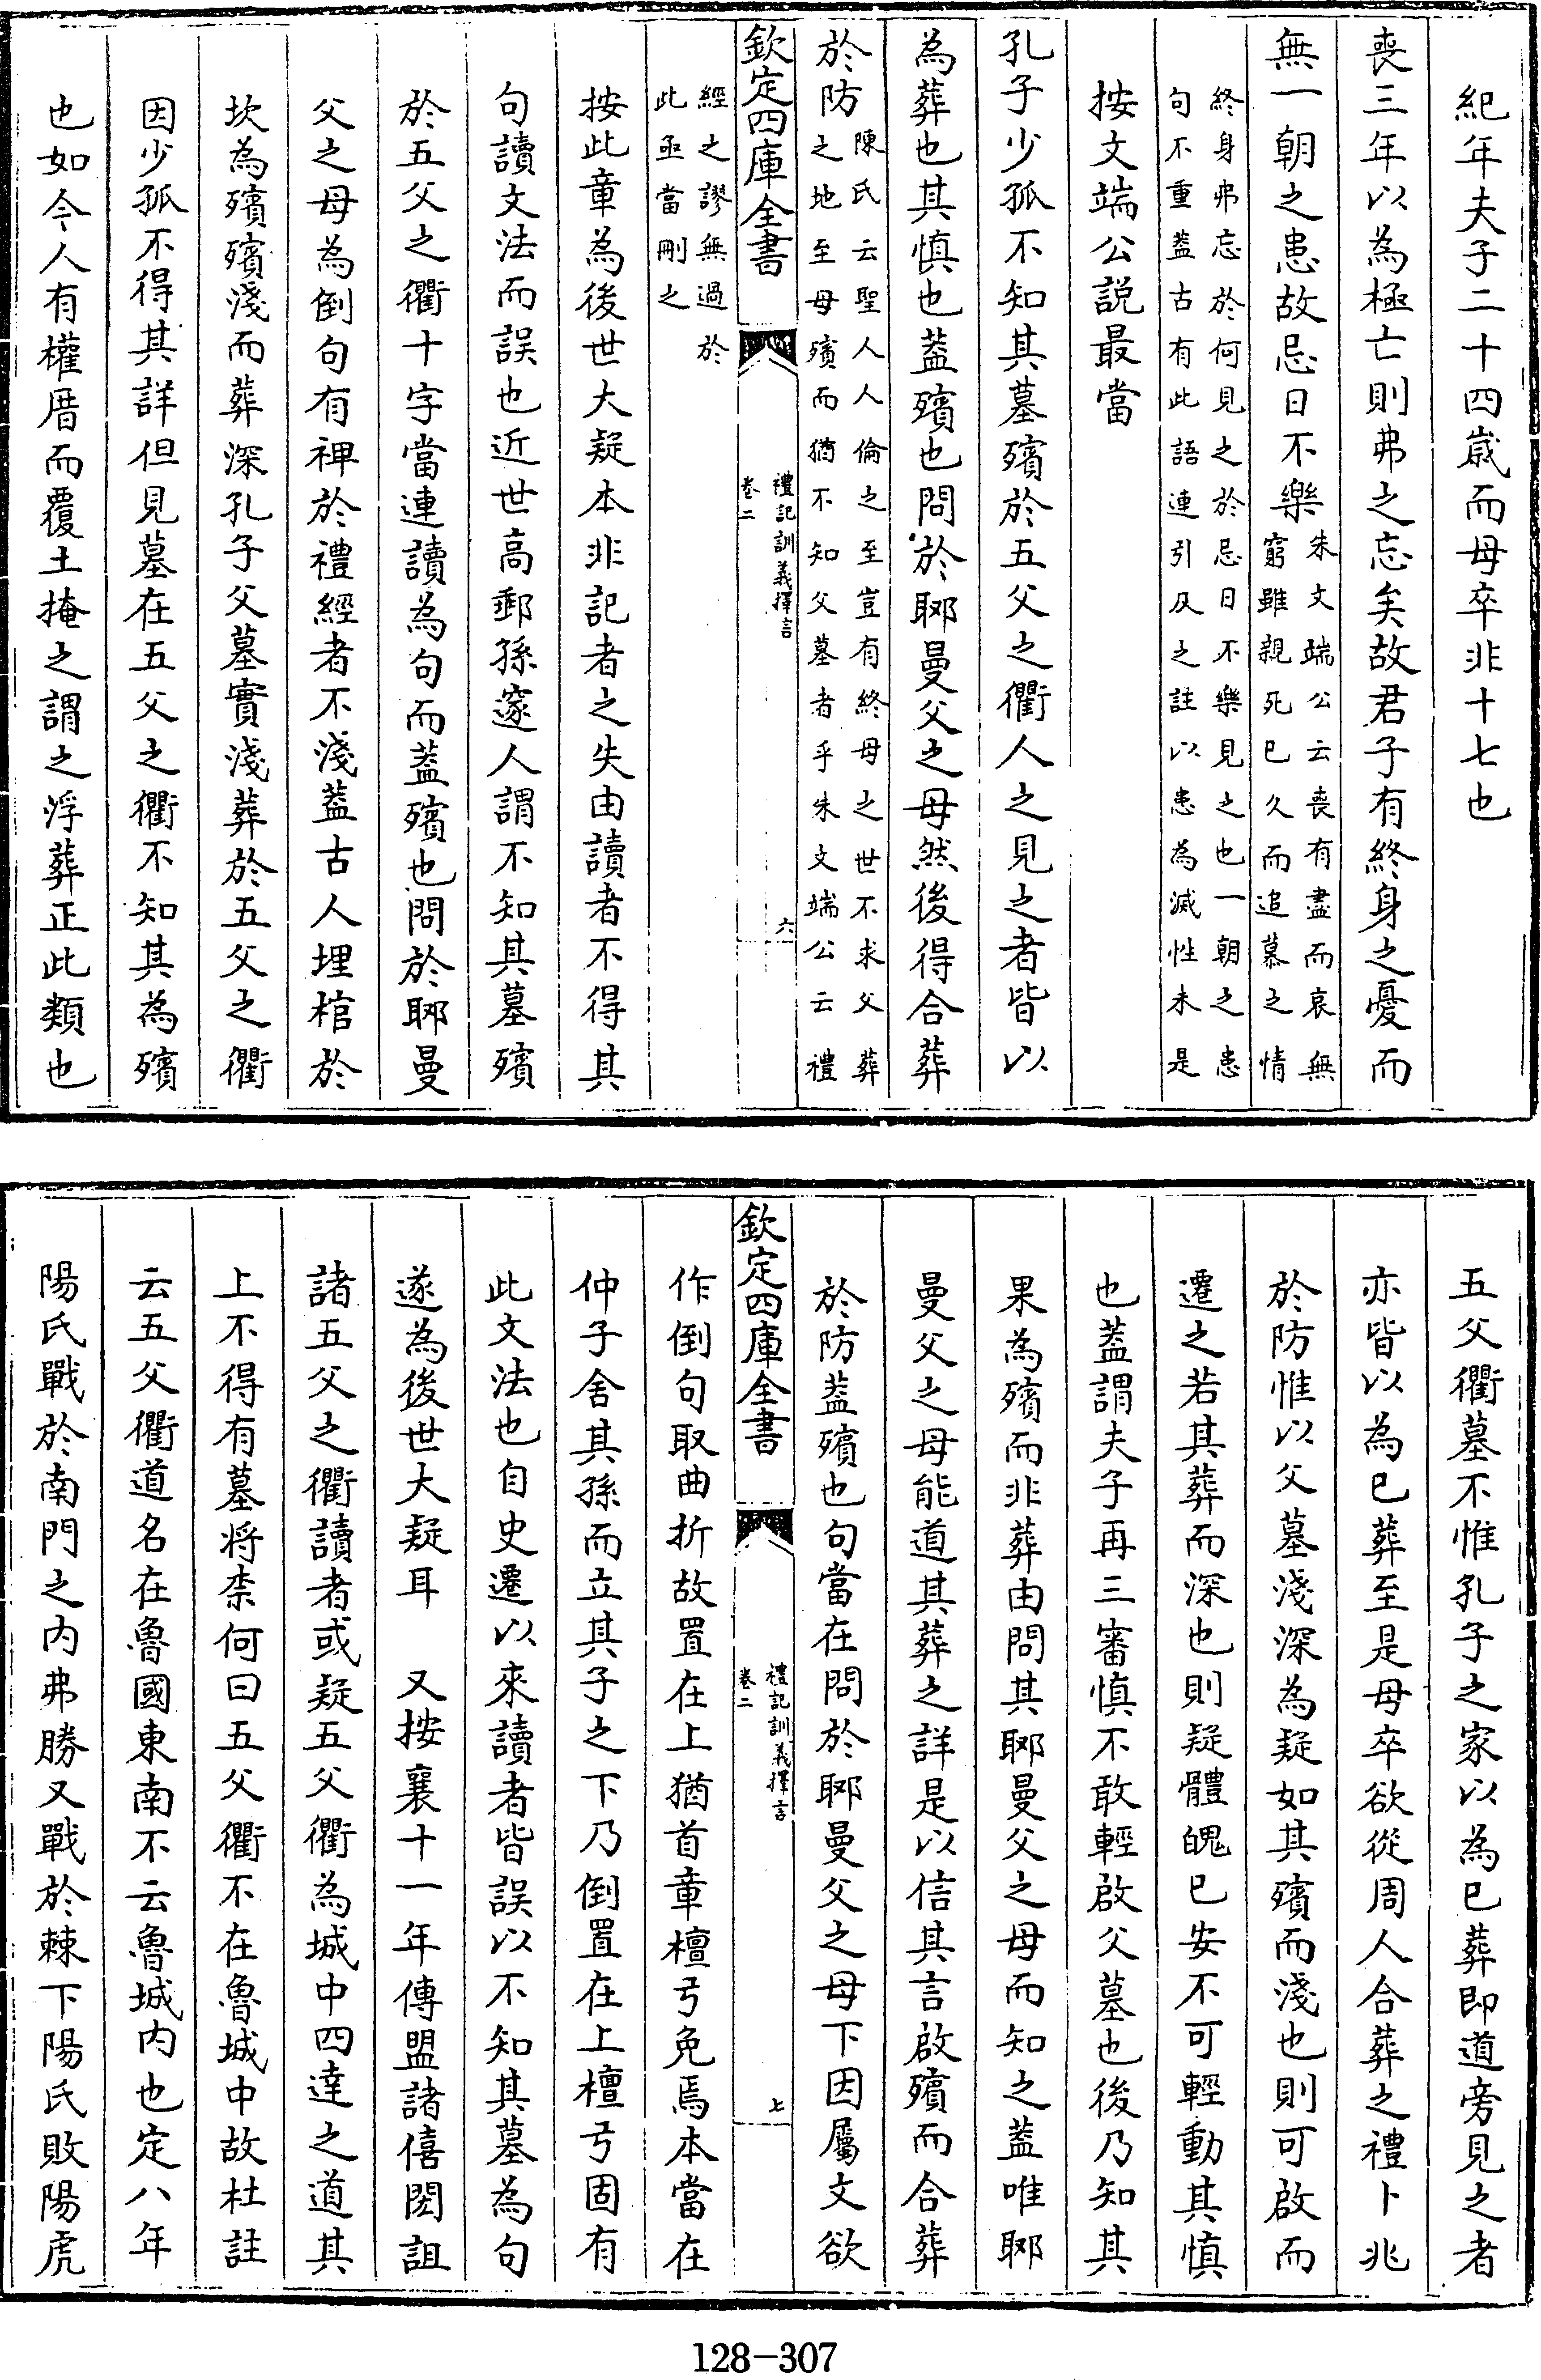 紀年夫子二十四歲而母卒非十七也
喪三年以為極亡則弗之忘矣故君子有終身之憂而
無一朝之患故忌日不樂朱文端公云喪有盡而哀無
窮雖親死已久而追慕之情
終身弗忘於何見之於忌日不樂見之也一朝之患
句不重蓋古有此語連引及之註以患為滅性未是
按文端公説最當
孔子少孤不知其墓殯於五父之衢人之見之者皆以
為葬也其慎也蓋殯也問於郰曼父之母然後得合葬
於防陳氏云聖人人倫之至豈有終母之世不求父葬
之地至母殯而猶不知父墓者乎朱文端公云禮
欽定四庫全書
禮記訓義擇言
卷二
六
經之謬無過於
此亟當刪之
按此章為後世大疑本非記者之失由讀者不得其
句讀文法而誤也近世高郵孫邃人謂不知其墓殯
於五父之衢十字當連讀為句而蓋殯也問於郰曼
父之母為倒句有裨於禮經者不淺蓋古人埋棺於
坎為殯殯淺而葬深孔子父墓實淺葬於五父之衢
因少孤不得其詳但見墓在五父之衢不知其為殯
也如今人有權厝而覆土掩之謂之浮葬正此類也
五父衢墓不惟孔子之家以為已葬即道旁見之者
亦皆以為已葬至是母卒欲從周人合葬之禮卜兆
於防惟以父墓淺深為疑如其殯而淺也則可啟而
遷之若其葬而深也則疑體魄已安不可輕動其慎
也蓋謂夫子再三審慎不敢輕啟父墓也後乃知其
果為殯而非葬由問其郰曼父之母而知之蓋唯郰
曼父之母能道其葬之詳是以信其言啟殯而合葬
於防蓋殯也句當在問於郰曼父之母下因屬文欲
欽定四庫全書
禮記訓義擇言
卷二
七
作倒句取曲折故置在上猶首章檀弓免焉本當在
仲子舍其孫而立其子之下乃倒置在上檀弓固有
此文法也自史遷以來讀者皆誤以不知其墓為句
遂為後世大疑耳　又按襄十一年傳盟諸僖閎詛
諸五父之衢讀者或疑五父衢為城中四達之道其
上不得有墓將柰何曰五父衢不在魯城中故杜註
云五父衢道名在魯國東南不云魯城内也定八年
陽氏戰於南門之内弗勝又戰於棘下陽氏敗陽虎
128-307